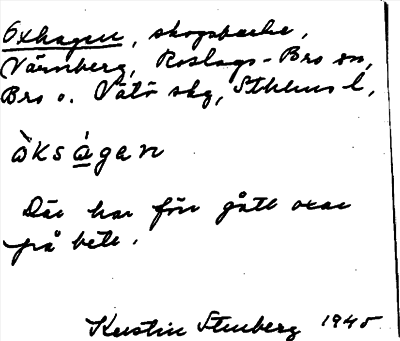 Oxhagen, skogsbacke,
Värnberg, Roslags-Bro sn,
Bro o. Vätö skg, Sthlms l,
òkságan
Där har förr gått oxar
på bete.
Kerstin Stenberg 1945